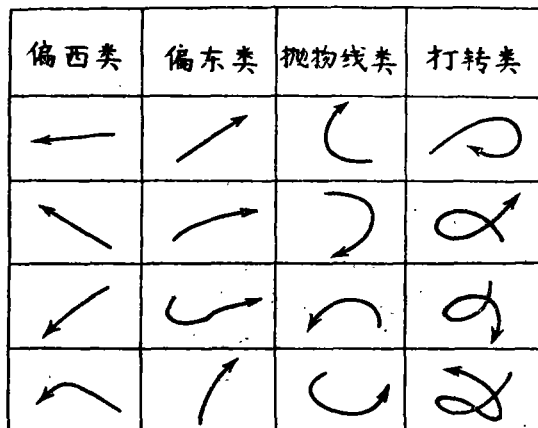 偏西类 偏东类 抛物线类 打转类